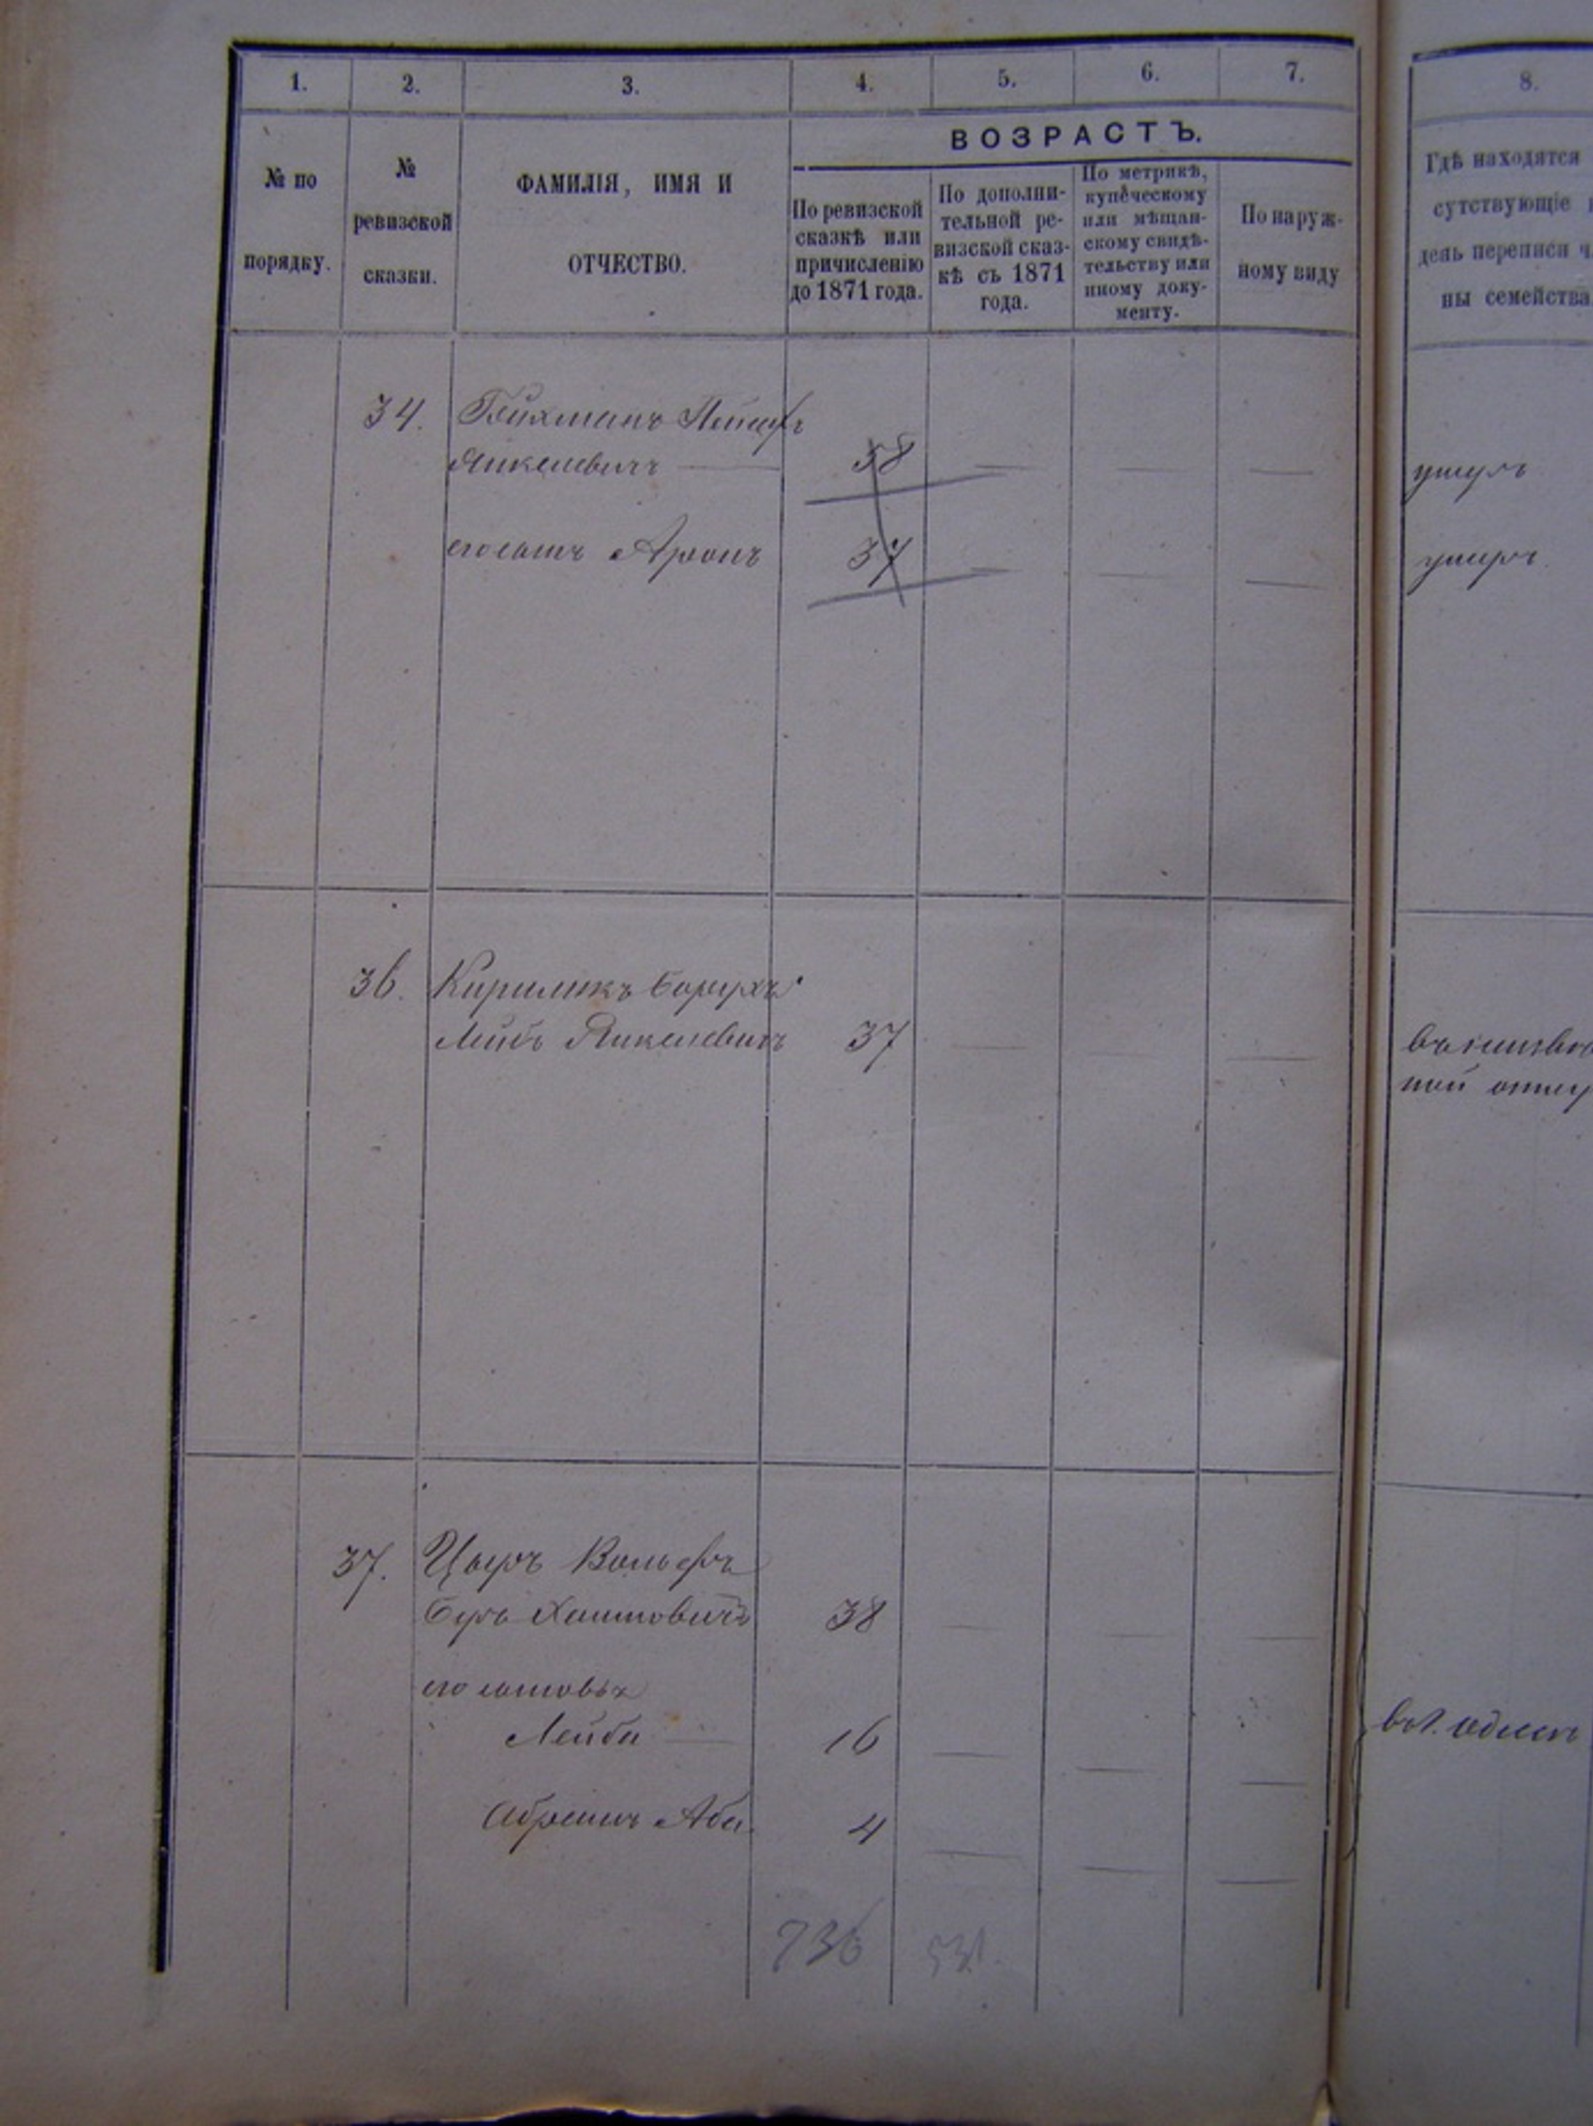 1.
2.
3.
4.
5.
6.
7.
8.
№ по
порядку.
№
ревизской
сказки.
ФАМИЛІЯ, ИМЯ И
ОТЧЕСТВО.
ВОЗРАСТЪ.
По ревизской
сказкѣ или
причисленію
до 1871 года.
По дополни-
тельной ре-
визской сказ-
кѣ съ 1871
года.
По метрикѣ,
купѣческому
или мѣщан-
скому свидѣ-
тельству или
иному доку-
менту.
По наруж-
ному виду
Гдѣ находятся
сутствующіе
день переписи ч
ны семейства
34.
Янкелевичъ 58
умеръ
его сынъ Аронъ 37
умеръ
36. Кириликъ Борухъ
Лейбъ Янкелевичъ 37
ной отпу
37. Цыръ Вольфъ
Беръ Хаимовичъ 38
его сыновья
Лейба 16
Абрамъ Аба 4
736 531